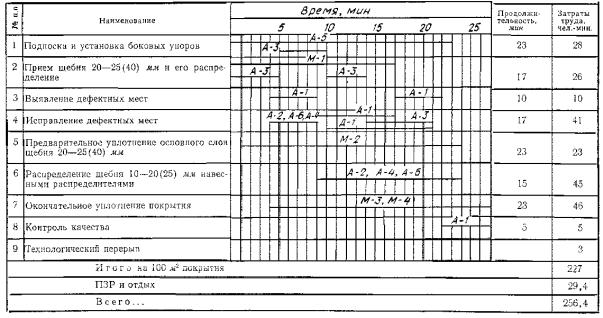 № п.п
Наименование
Время, мин
5 10 15 20 25
Продолжи-
тельность,
мин
Затраты
труда,
чел.-мин.
1 Подноска и установка боковых упоров
А-5
А-3
23 28
2 Прием щебня 20—25(40) мм и его распре-
деление
М-1
А-3 А-3
17 26
3 Выявление дефектных мест
А-1 А-1
10 10
4 Исправление дефектных мест
А-2, А-6, А-4 А-1 А-3
А-1
17 41
5 Предварительное уплотнение основного слоя
щебня 20—25(40) мм
М-2
23 23
6 Распределение щебня 10—20(25) мм навес-
ными распределителями
А-2, А-4, А-6
15 45
7 Окончательное уплотнение покрытия
М-3, М-4
23 46
8 Контроль качества
А-1
5 5
9 Технологический перерыв
3
Итого на 100 м² покрытия
227
ПЗР и отдых
29,4
Всего...
256,4